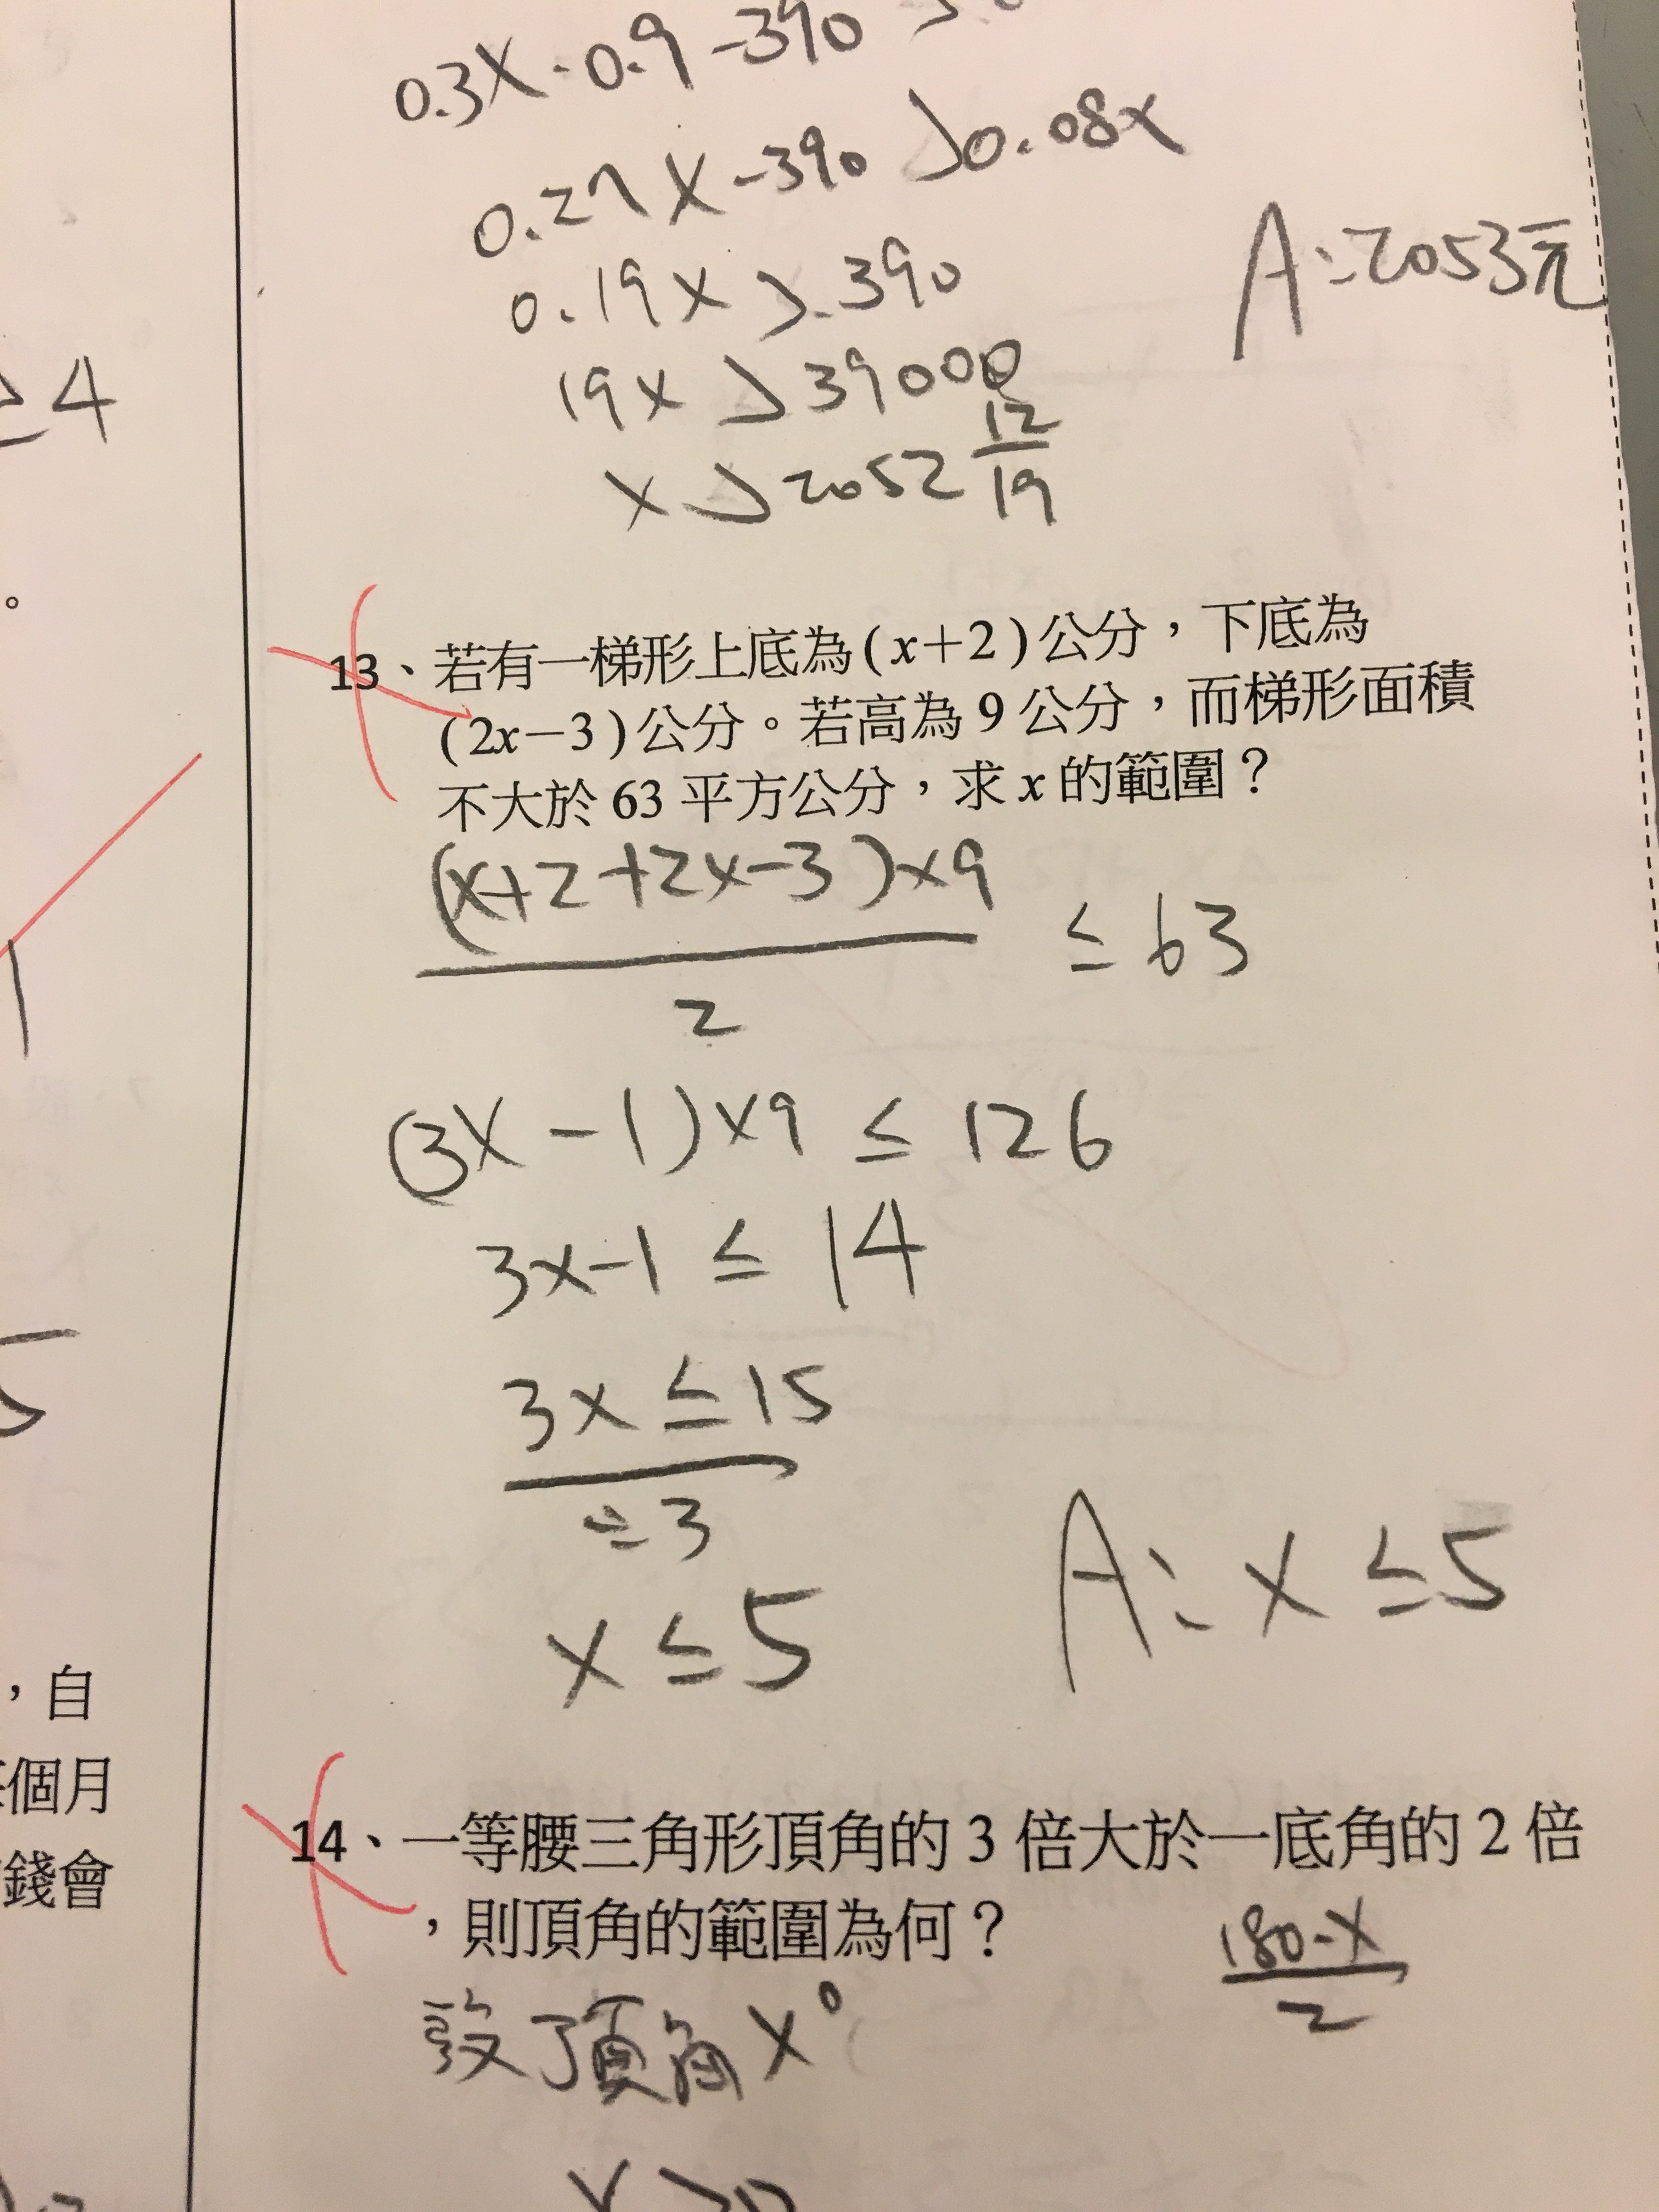 0.3x·0.9-390 >
0.27x-390 >0.08x
0.19x >.390
A:2053元
19x >39000
x >2052 12/19
≥4
。
13、若有一梯形上底為(x+2)公分，下底為
(2x−3)公分。若高為9公分，而梯形面積
不大於63平方公分，求x的範圍？
(x+2+2x-3)×9
≤63
2
1
(3x-1)×9 ≤ 126
3x-1 ≤ 14
3x ≤15
÷3
5
x ≤5
A: x ≤5
，自
個月
錢會
14、一等腰三角形頂角的3倍大於一底角的2倍
，則頂角的範圍為何？
180-x
2
設頂角x°
x>0